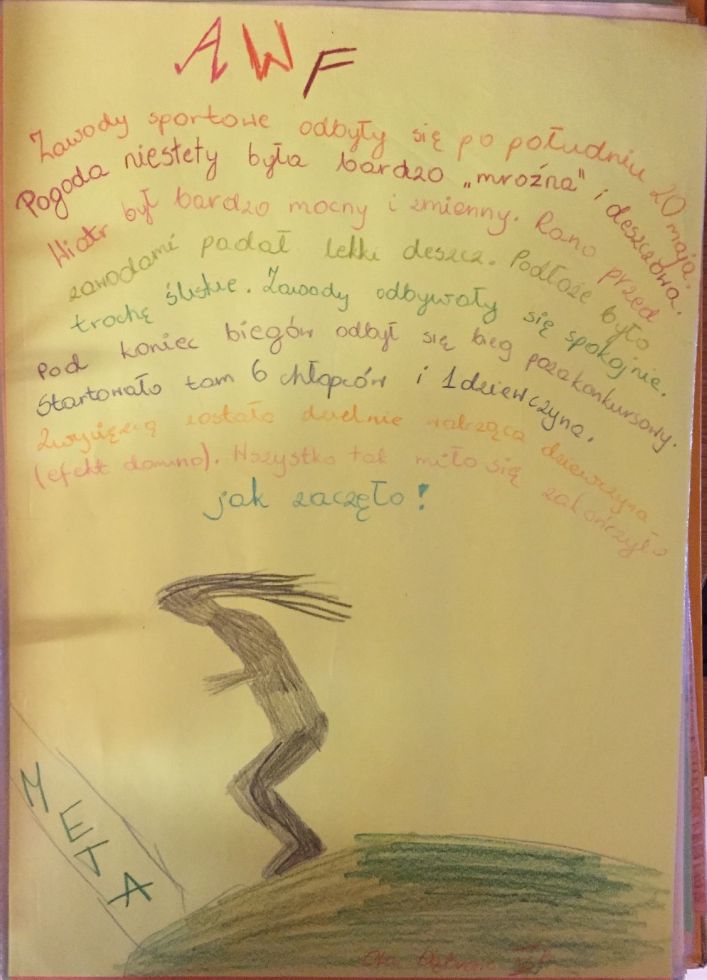 AWF
Zawody sportowe odbyły się po południu 20 maja.
Pogoda niestety była bardzo „mroźna" i deszczowa.
Wiatr był bardzo mocny i zmienny. Rano przed
zawodami padał lekki deszcz. Podłoże było
trochę śliskie. Zawody odbywały się spokojnie.
Pod koniec biegów odbył się bieg pozakonkursowy.
Startowało tam 6 chłopców i 1 dziewczyna.
Zwycięzcą została dzielnie walcząca dziewczyna
(efekt domino). Wszystko tak miło się zakończyło
jak zaczęło!
META